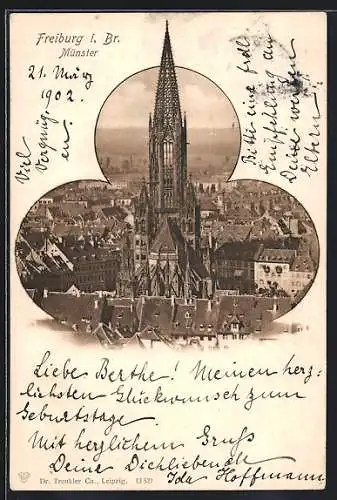 Freiburg i. Br.
Münster
21. März
1902.
Viel
Vergnüg
en.
Bitte eine frdl.
Empfehlung an
Deine werten
Eltern
Liebe Berthe! Meinen herz-
lichsten Glückwunsch zum
Geburtstage.
Mit herzlichem Gruß
Deine Dichliebende
Ida Hoffmann
Dr. Trenkler Co., Leipzig.